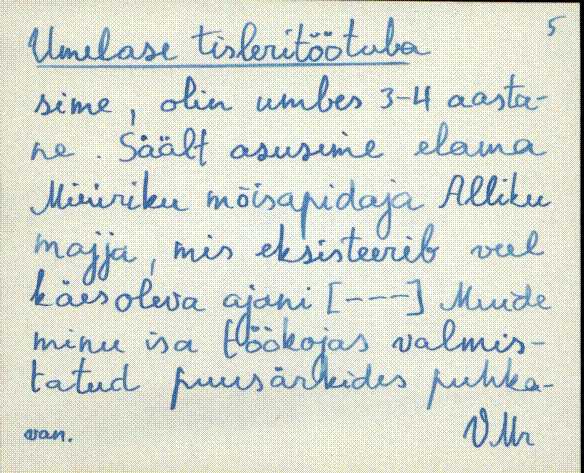 5
Umelase tisleritöötuba
sime, olin umbes 3-4 aasta-
ne. Säält asusime elama
Müüriku mõisapidaja Alliku
majja, mis eksisteerib veel
käesoleva ajani [---] Muide
minu isa töökojas valmis-
tatud puusärkides puhka-
van.
VMr